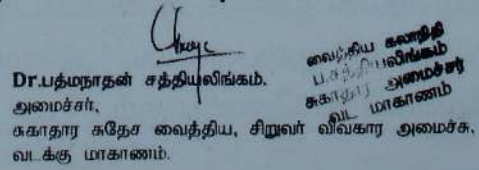 Dr.பத்மநாதன் சத்தியலிங்கம்.
அமைச்சர்,
சுகாதார சுதேச வைத்திய, சிறுவர் விவகார அமைச்சு,
வடக்கு மாகாணம்.
வைத்திய கலாநிதி
ப.சத்தியலிங்கம்
சுகாதார அமைச்சர்
வட மாகாணம்